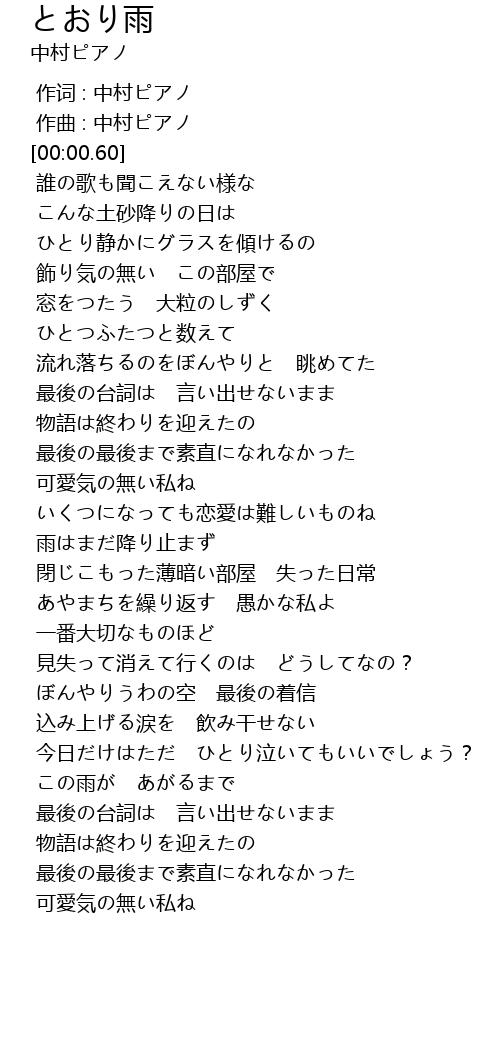 とおり雨
中村ピアノ
作词 : 中村ピアノ
作曲 : 中村ピアノ
[00:00.60]
誰の歌も聞こえない様な
こんな土砂降りの日は
ひとり静かにグラスを傾けるの
飾り気の無い　この部屋で
窓をつたう　大粒のしずく
ひとつふたつと数えて
流れ落ちるのをぼんやりと　眺めてた
最後の台詞は　言い出せないまま
物語は終わりを迎えたの
最後の最後まで素直になれなかった
可愛気の無い私ね
いくつになっても恋愛は難しいものね
雨はまだ降り止まず
閉じこもった薄暗い部屋　失った日常
あやまちを繰り返す　愚かな私よ
一番大切なものほど
見失って消えて行くのは　どうしてなの？
ぼんやりうわの空　最後の着信
込み上げる涙を　飲み干せない
今日だけはただ　ひとり泣いてもいいでしょう？
この雨が　あがるまで
最後の台詞は　言い出せないまま
物語は終わりを迎えたの
最後の最後まで素直になれなかった
可愛気の無い私ね